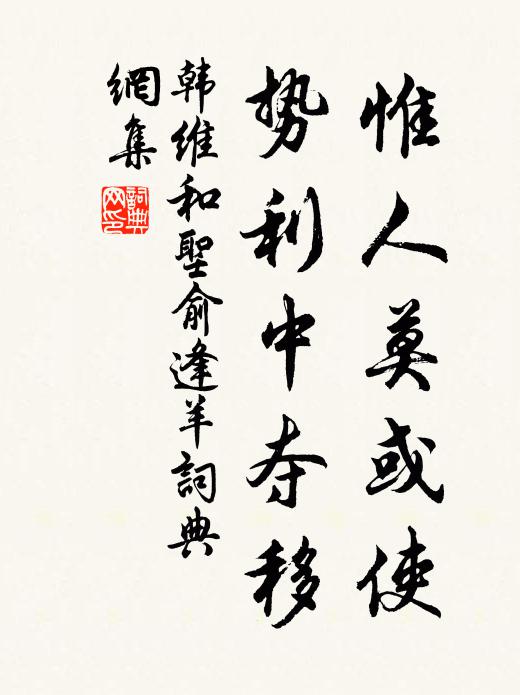 惟人莫或使
势利中夺移
韩维和聖俞逢羊詞典
網集
詞典网印